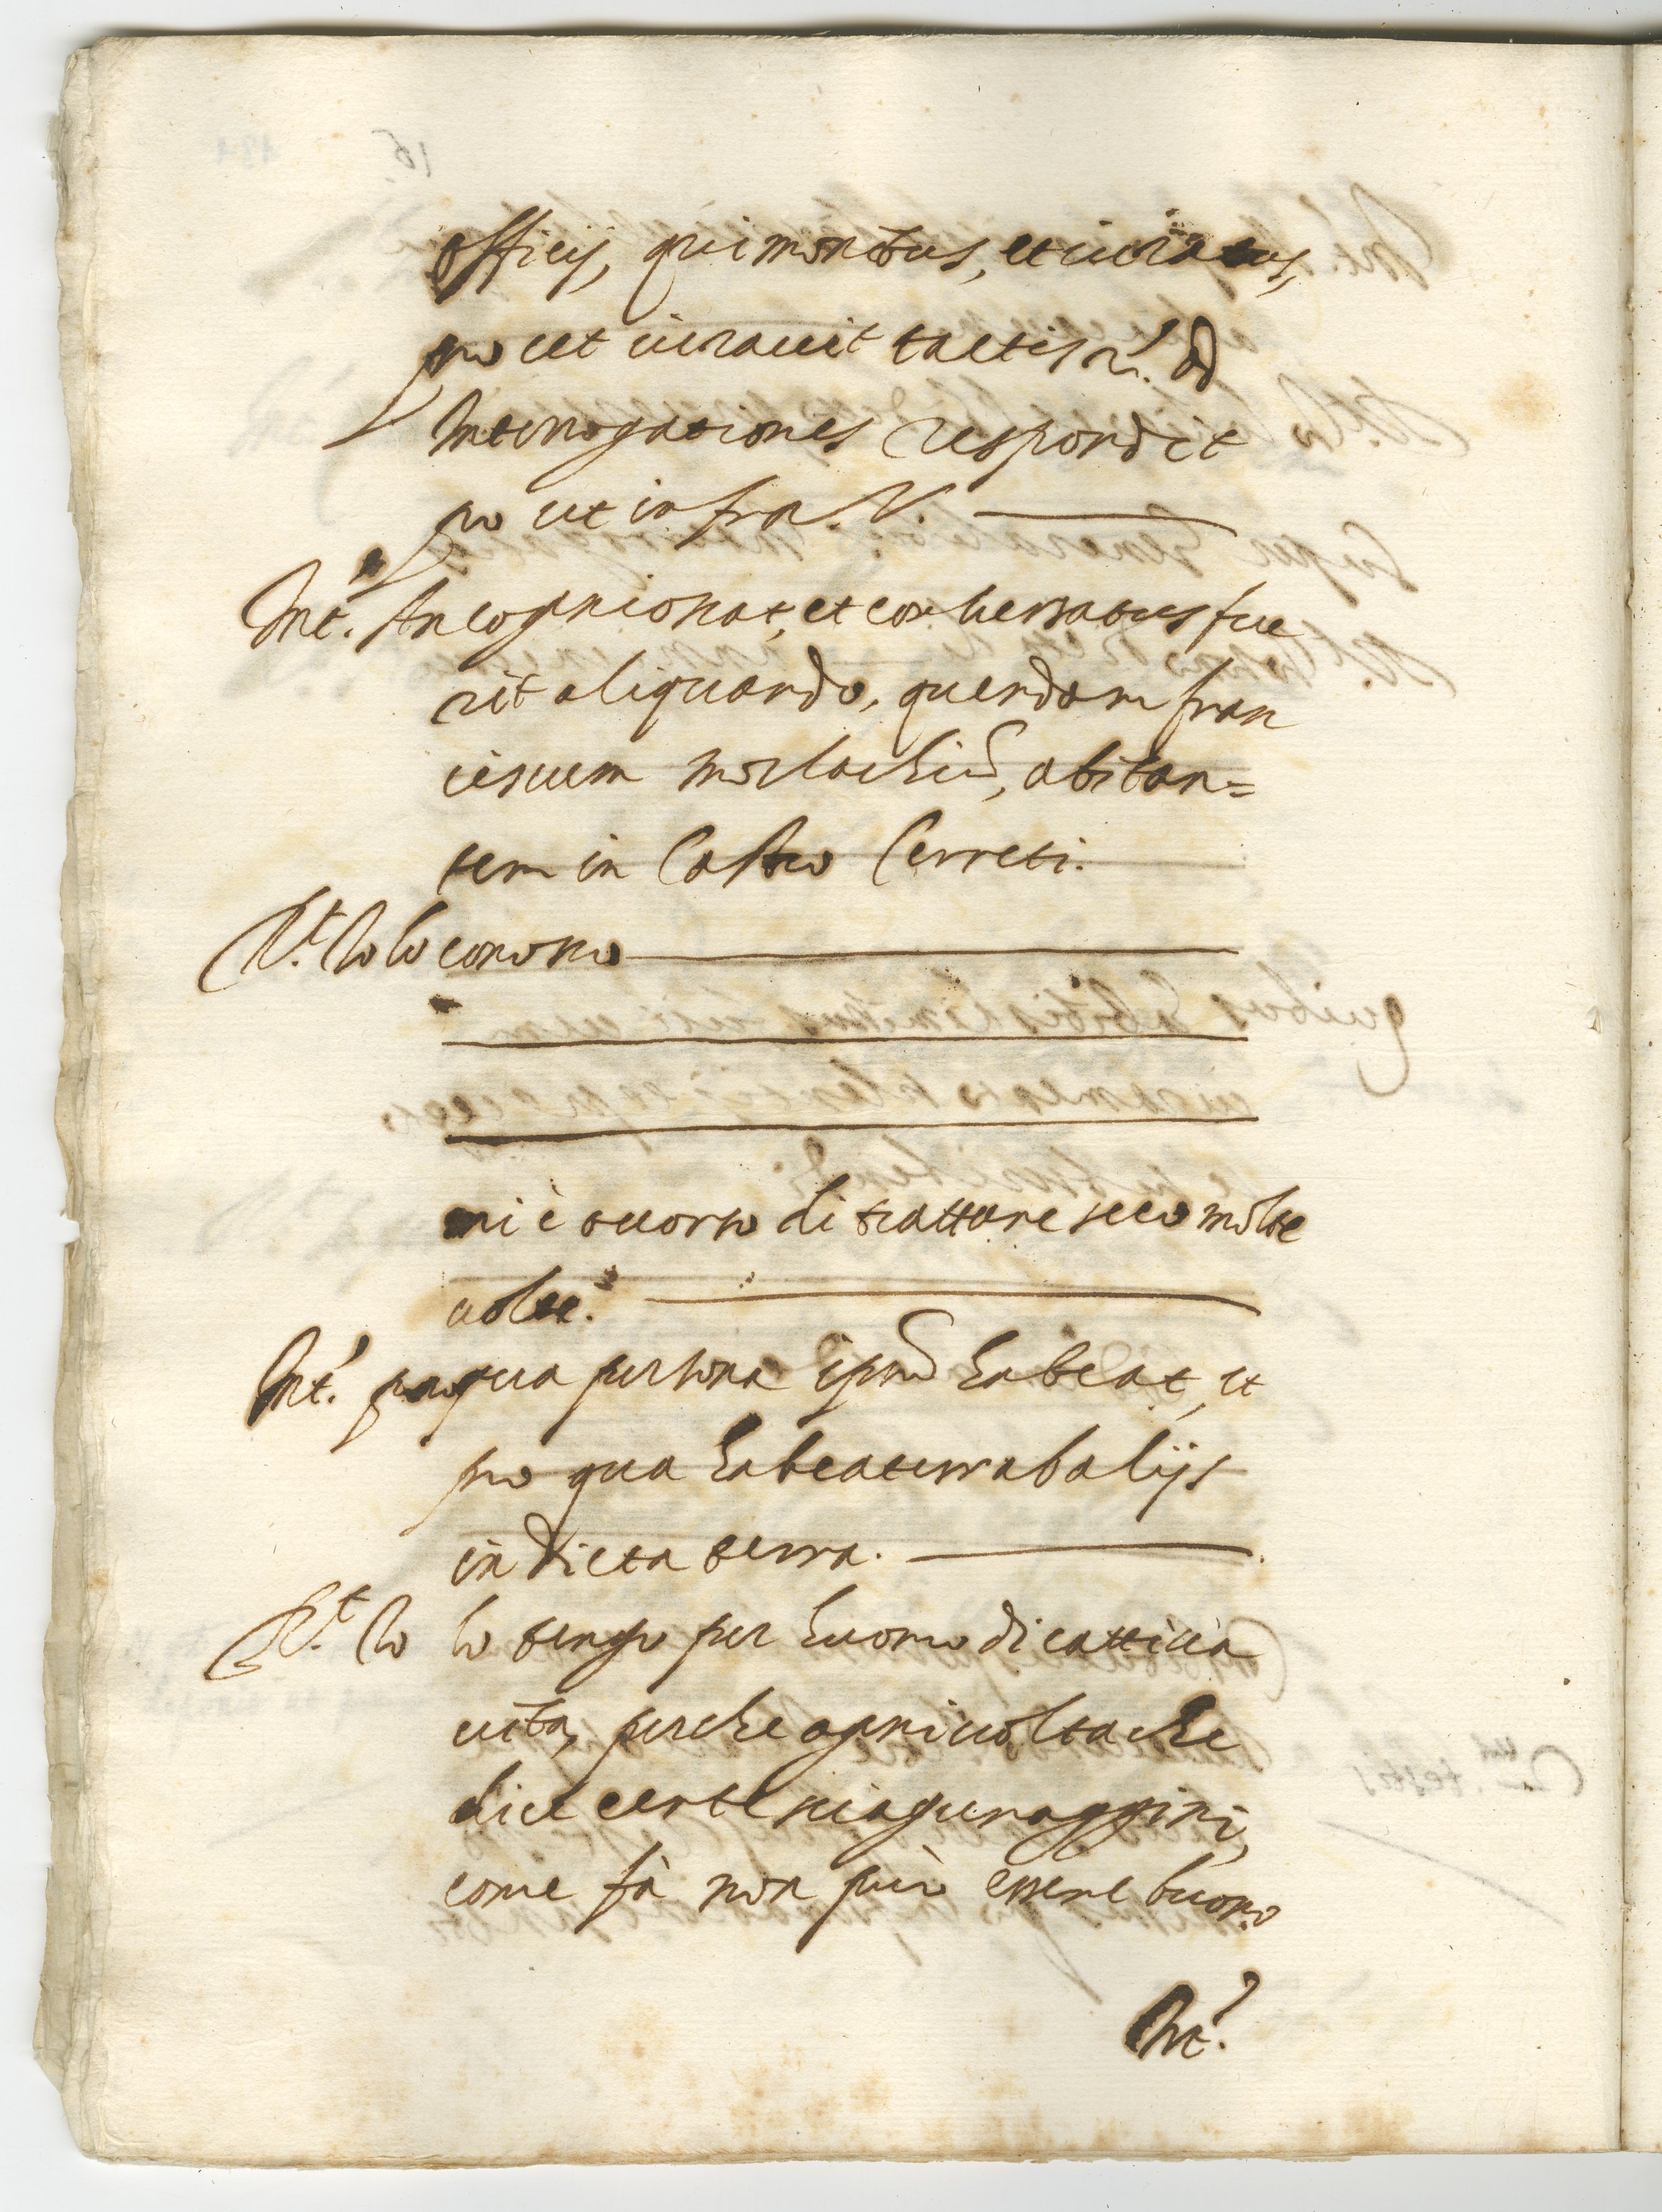 officij, qui monitus, et iuratus,
pro ut iurauit tactis &c. ad
Interrogationes respondit
pro ut infra. V.
Int. An cognoscat, et conuersatus fue
rit aliquando, quendam fran
ciscum morlachiũ, abitan=
tem in Castro Cerreti.
Rt. Io lo conosco
mi è occorso di trattare seco molte
uolte.
Int. pro qua persona ipsũ habeat, et
pro qua habeatur ab alijs
in dicta terra.
Rt. Io lo tengo per huomo di cattiua
uita, perche ogni uolta che
dice certe sciaguraggini,
come fà non può essere buono
Int.